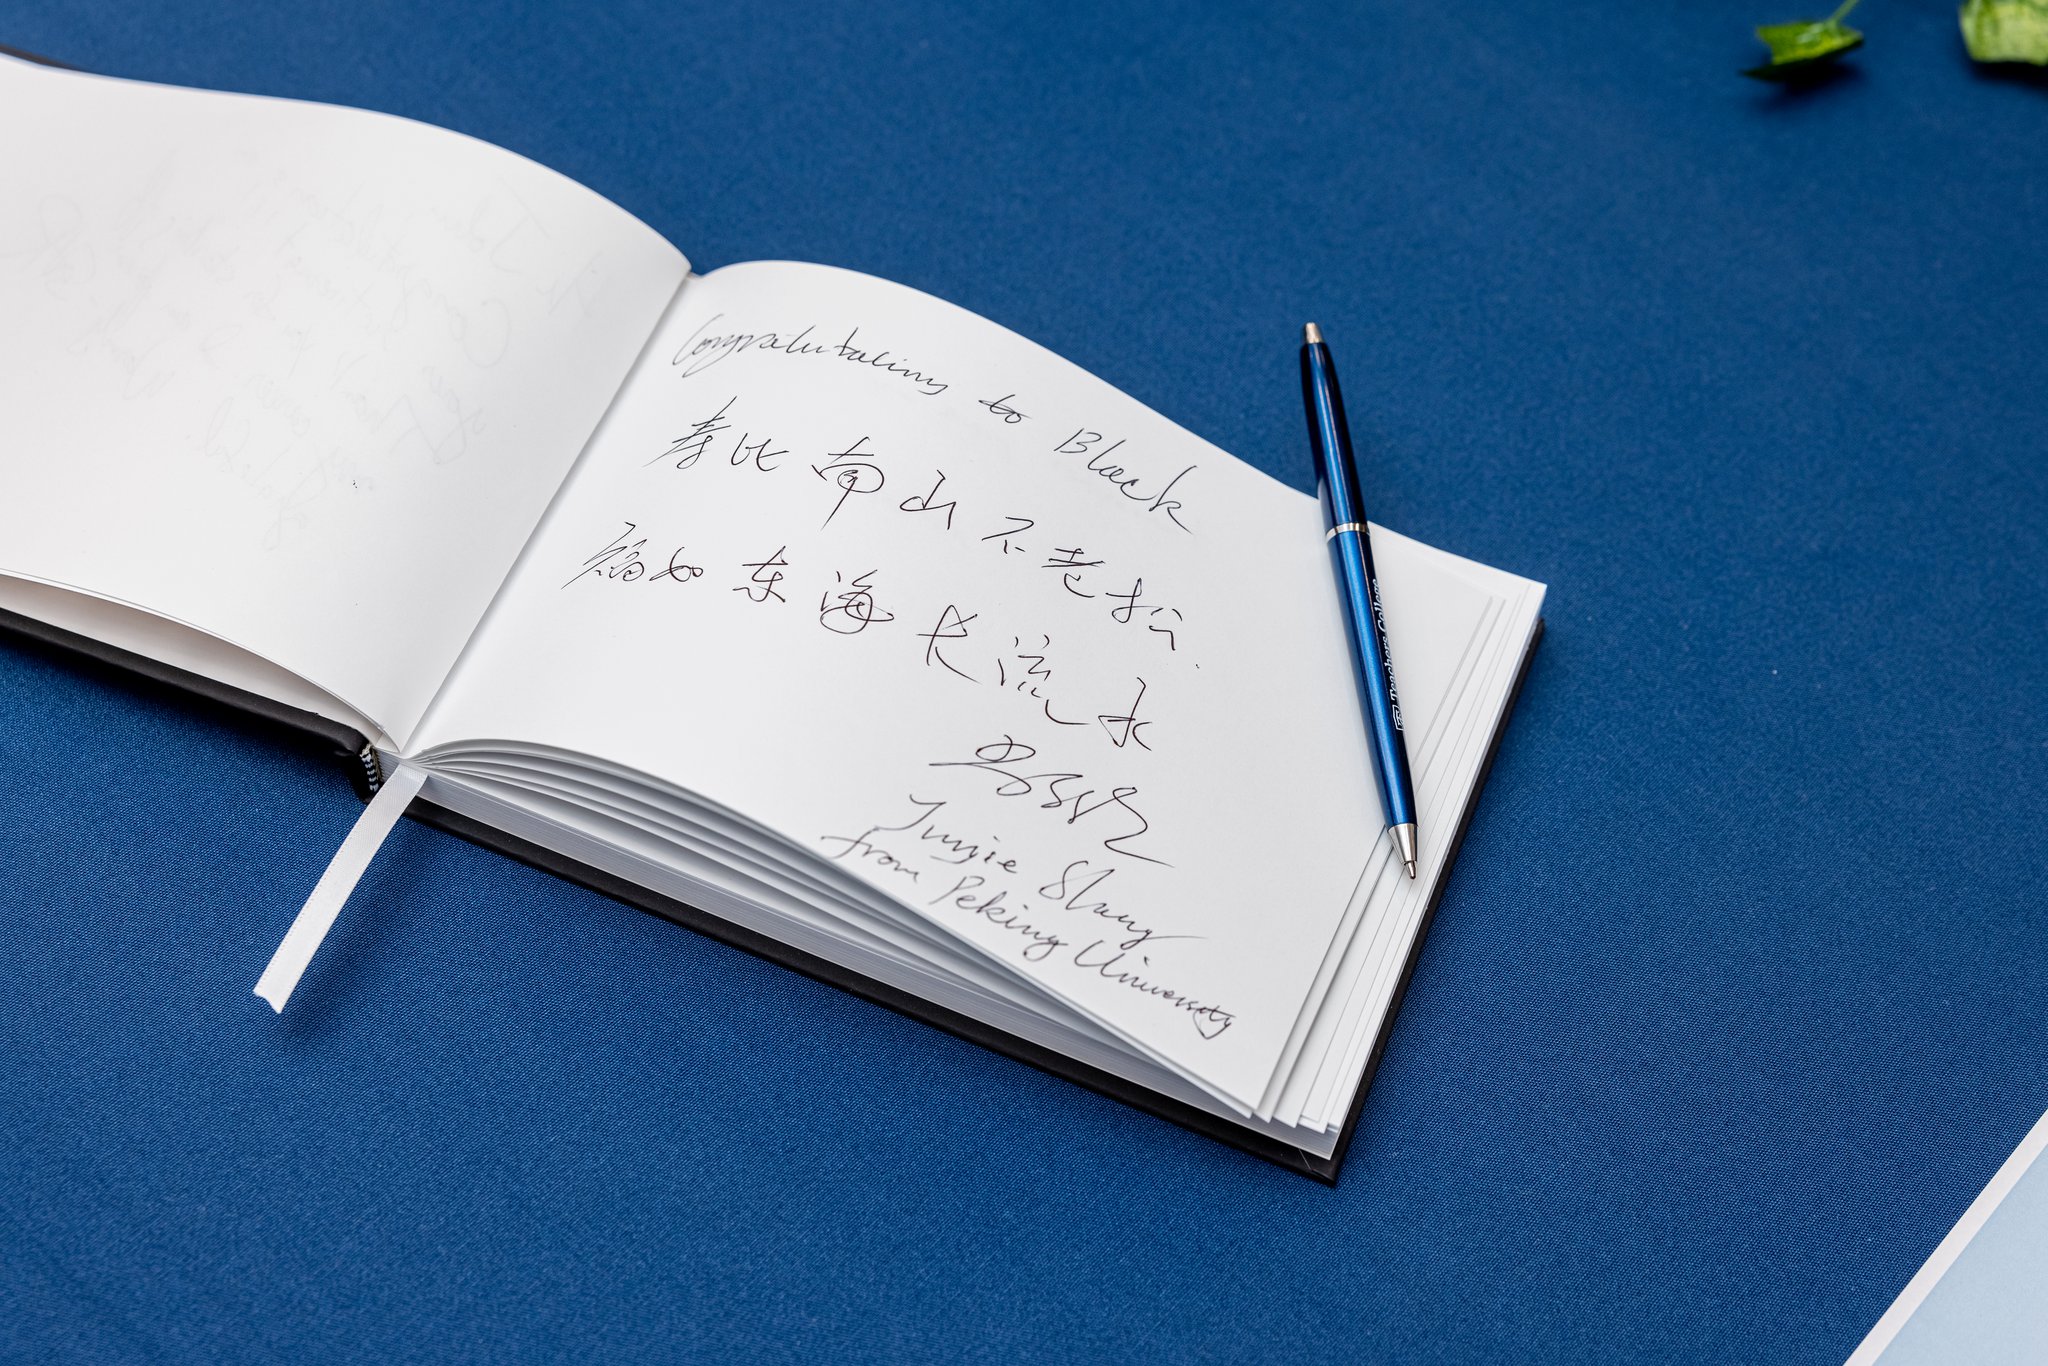 Congratulations to Black
寿比南山不老松
福如东海长流水
尚俊杰
Junjie Shang
from Peking University
Teachers College